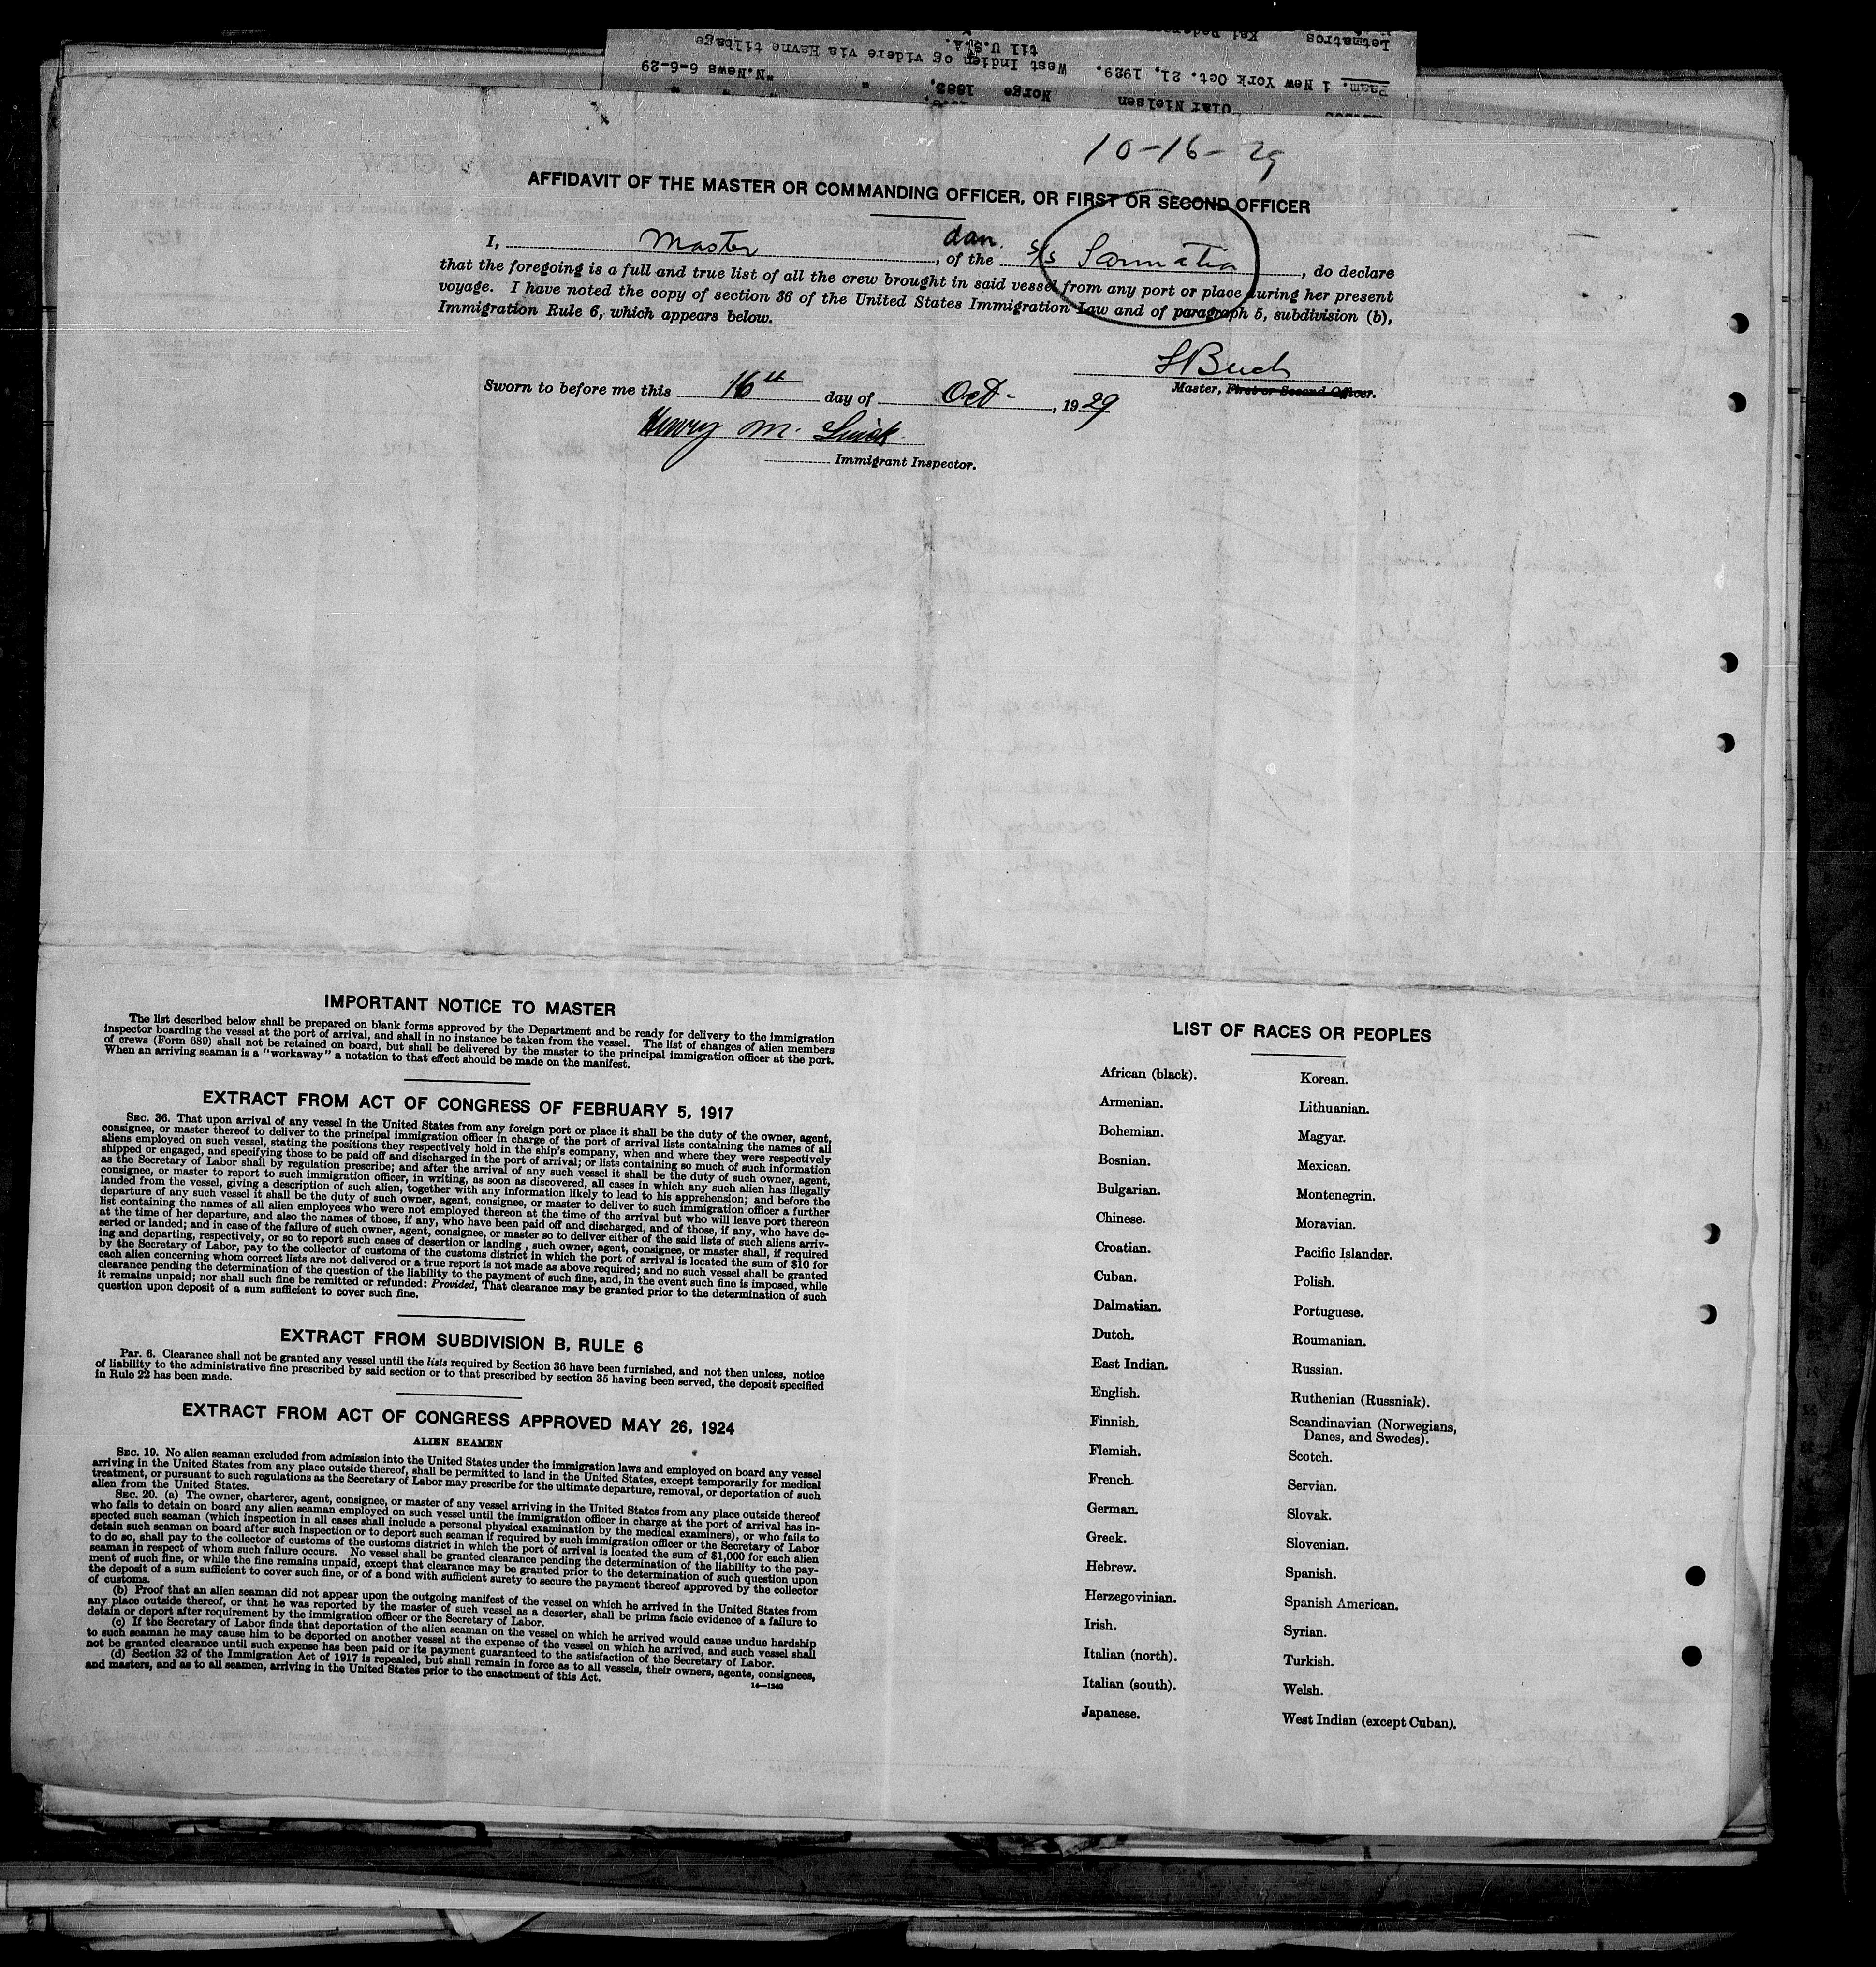 10-16-29
AFFIDAVIT OF THE MASTER OR COMMANDING OFFICER, OR FIRST OR SECOND OFFICER
I, Master, of the dan. s/s Sarmatia, do declare
that the foregoing is a full and true list of all the crew brought in said vessel from any port or place during her present
voyage. I have noted the copy of section 36 of the United States Immigration Law and of paragraph 5, subdivision (b),
Immigration Rule 6, which appears below.
Master, First or Second Officer.
Sworn to before me this 16th day of Oct-, 1929
Henry M.
Immigrant Inspector.
IMPORTANT NOTICE TO MASTER
The list described below shall be prepared on blank forms approved by the Department and be ready for delivery to the immigration
inspector boarding the vessel at the port of arrival, and shall in no instance be taken from the vessel. The list of changes of alien members
of crews (Form 689) shall not be retained on board, but shall be delivered by the master to the principal immigration officer at the port.
When an arriving seaman is a "workaway" a notation to that effect should be made on the manifest.
EXTRACT FROM ACT OF CONGRESS OF FEBRUARY 5, 1917
SEC. 36. That upon arrival of any vessel in the United States from any foreign port or place it shall be the duty of the owner, agent,
consignee, or master thereof to deliver to the principal immigration officer in charge of the port of arrival lists containing the names of all
aliens employed on such vessel, stating the positions they respectively hold in the ship's company, when and where they were respectively
shipped or engaged, and specifying those to be paid off and discharged in the port of arrival; or lists containing so much of such information
as the Secretary of Labor shall by regulation prescribe; and after the arrival of any such vessel it shall be the duty of such owner, agent,
consignee, or master to report to such immigration officer, in writing, as soon as discovered, all cases in which any such alien has illegally
landed from the vessel, giving a description of such alien, together with any information likely to lead to his apprehension; and before the
departure of any such vessel it shall be the duty of such owner, agent, consignee, or master to deliver to such immigration officer a further
list containing the names of all alien employees who were not employed thereon at the time of the arrival but who will leave port thereon
at the time of her departure, and also the names of those, if any, who have been paid off and discharged, and of those, if any, who have de-
serted or landed; and in case of the failure of such owner, agent, consignee, or master so to deliver either of the said lists of such aliens arriv-
ing and departing, respectively, or so to report such cases of desertion or landing , such owner, agent, consignee, or master shall, if required
by the Secretary of Labor, pay to the collector of customs of the customs district in which the port of arrival is located the sum of $10 for
each alien concerning whom correct lists are not delivered or a true report is not made as above required; and no such vessel shall be granted
clearance pending the determination of the question of the liability to the payment of such fine, and, in the event such fine is imposed, while
it remains unpaid; nor shall such fine be remitted or refunded: Provided, That clearance may be granted prior to the determination of such
question upon deposit of a sum sufficient to cover such fine.
EXTRACT FROM SUBDIVISION B, RULE 6
Par. 6. Clearance shall not be granted any vessel until the lists required by Section 36 have been furnished, and not then unless, notice
of liability to the administrative fine prescribed by said section or to that prescribed by section 35 having been served, the deposit specified
in Rule 22 has been made.
EXTRACT FROM ACT OF CONGRESS APPROVED MAY 26, 1924
ALIEN SEAMEN
SEC. 19. No alien seaman excluded from admission into the United States under the immigration laws and employed on board any vessel
arriving in the United States from any place outside thereof, shall be permitted to land in the United States, except temporarily for medical
treatment, or pursuant to such regulations as the Secretary of Labor may prescribe for the ultimate departure, removal, or deportation of such
alien from the United States.
SEC. 20. (a) The owner, charterer, agent, consignee, or master of any vessel arriving in the United States from any place outside thereof
who fails to detain on board any alien seaman employed on such vessel until the immigration officer in charge at the port of arrival has in-
spected such seaman (which inspection in all cases shall include a personal physical examination by the medical examiners), or who fails to
detain such seaman on board after such inspection or to deport such seaman if required by such immigration officer or the Secretary of Labor
to do so, shall pay to the collector of customs of the customs district in which the port of arrival is located the sum of $1,000 for each alien
seaman in respect of whom such failure occurs. No vessel shall be granted clearance pending the determination of the liability to the pay-
ment of such fine, or while the fine remains unpaid, except that clearance may be granted prior to the determination of such question upon
the deposit of a sum sufficient to cover such fine, or of a bond with sufficient surety to secure the payment thereof approved by the collector
of customs.
(b) Proof that an alien seaman did not appear upon the outgoing manifest of the vessel on which he arrived in the United States from
any place outside thereof, or that he was reported by the master of such vessel as a deserter, shall be prima facie evidence of a failure to
detain or deport after requirement by the immigration officer or the Secretary of Labor.
(c) If the Secretary of Labor finds that deportation of the alien seaman on the vessel on which he arrived would cause undue hardship
to such seaman he may cause him to be deported on another vessel at the expense of the vessel on which he arrived, and such vessel shall
not be granted clearance until such expense has been paid or its payment guaranteed to the satisfaction of the Secretary of Labor.
(d) Section 32 of the Immigration Act of 1917 is repealed, but shall remain in force as to all vessels, their owners, agents, consignees,
and masters, and as to all seamen, arriving in the United States prior to the enactment of this Act.
14—1240
LIST OF RACES OR PEOPLES
African (black).
Armenian.
Bohemian.
Bosnian.
Bulgarian.
Chinese.
Croatian.
Cuban.
Dalmatian.
Dutch.
East Indian.
English.
Finnish.
Flemish.
French.
German.
Greek.
Hebrew.
Herzegovinian.
Irish.
Italian (north).
Italian (south).
Japanese.
Korean.
Lithuanian.
Magyar.
Mexican.
Montenegrin.
Moravian.
Pacific Islander.
Polish.
Portuguese.
Roumanian.
Russian.
Ruthenian (Russniak).
Scandinavian (Norwegians,
Danes, and Swedes).
Scotch.
Servian.
Slovak.
Slovenian.
Spanish.
Spanish American.
Syrian.
Turkish.
Welsh.
West Indian (except Cuban).